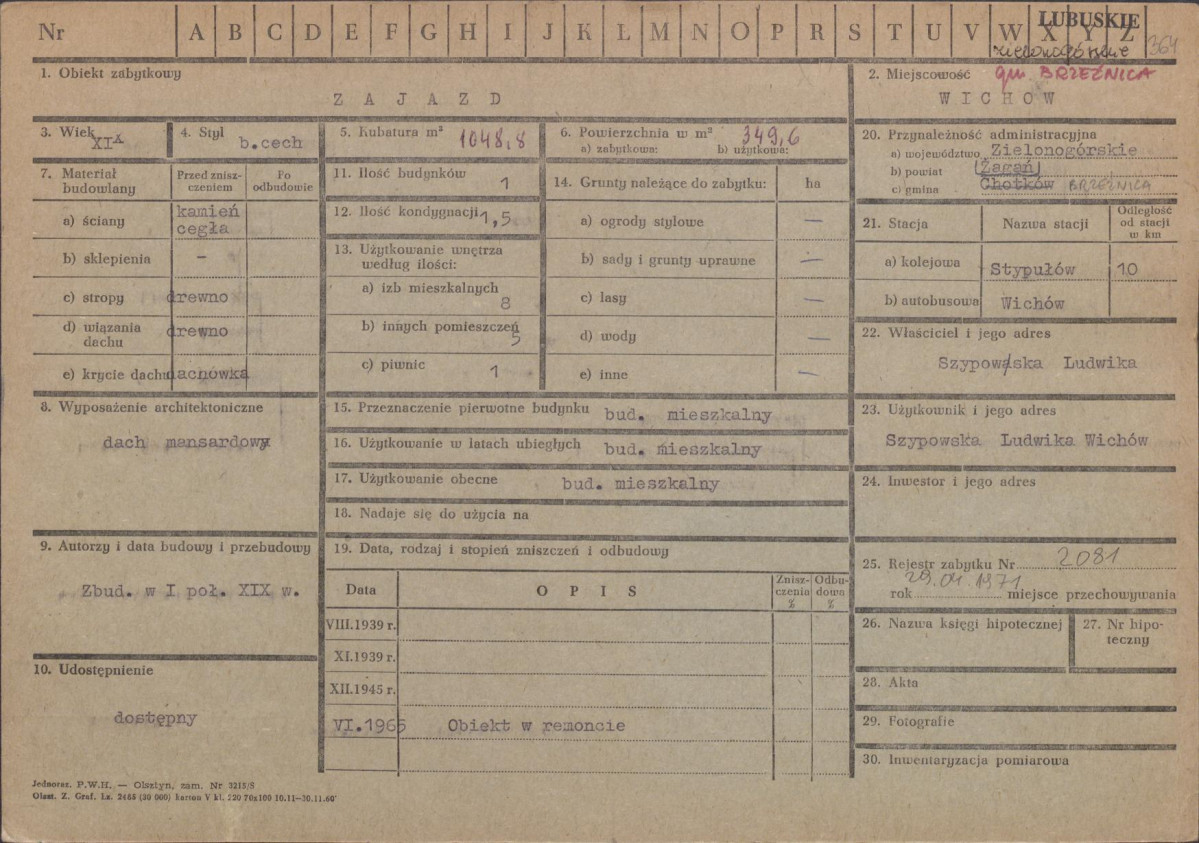 Nr A B C D E F G H I J K L Ł M N O P R S T U V W X Y Z
ŁUBUSKIE
zielonogórskie
364
1. Obiekt zabytkowy
ZAJAZD
2. Miejscowość gm. BRZEŹNICA
WICHÓW
3. Wiek XIX
4. Styl b.cech
5. Kubatura m² 1048,8
6. Powierzchnia w m² 349,6
a) zabytkowa: b) użytkowa:
7. Materiał budowlany
Przed znisz-
czeniem
Po
odbudowie
a) ściany kamień
cegła
b) sklepienia –
c) stropy drewno
d) wiązania
dachu drewno
e) krycie dachu dachówka
8. Wyposażenie architektoniczne
dach mansardowy
9. Autorzy i data budowy i przebudowy
Zbud. w I poł. XIX w.
10. Udostępnienie
dostępny
11. Ilość budynków 1
12. Ilość kondygnacji 1,5
13. Użytkowanie wnętrza
według ilości:
a) izb mieszkalnych
8
b) innych pomieszczeń
5
c) piwnic 1
14. Grunty należące do zabytku: ha
a) ogrody stylowe –
b) sady i grunty uprawne –
c) lasy –
d) wody –
e) inne –
15. Przeznaczenie pierwotne budynku bud. mieszkalny
16. Użytkowanie w latach ubiegłych bud. mieszkalny
17. Użytkowanie obecne bud. mieszkalny
18. Nadaje się do użycia na
19. Data, rodzaj i stopień zniszczeń i odbudowy
Data OPIS
Znisz-
czenia
%
Odbu-
dowa
%
VIII.1939 r.
XI.1939 r.
XII.1945 r.
VI.1965 Obiekt w remoncie
20. Przynależność administracyjna
a) województwo Zielonogórskie
b) powiat Żagań
c) gmina Chotków BRZEŹNICA
21. Stacja Nazwa stacji
Odległość
od stacji
w km
a) kolejowa Stypułów 10
b) autobusowa Wichów
22. Właściciel i jego adres
Szypowska Ludwika
23. Użytkownik i jego adres
Szypowska Ludwika Wichów
24. Inwestor i jego adres
25. Rejestr zabytku Nr 2081
rok 29.04.1971 miejsce przechowywania
26. Nazwa księgi hipotecznej
27. Nr hipo-
teczny
28. Akta
29. Fotografie
30. Inwentaryzacja pomiarowa
Jednoraz. P.W.H. — Olsztyn, zam. Nr 3215/S
Olszt. Z. Graf. Lz. 2455 (30 000) karton V kl. 220 70x100 10.11–30.11.60'